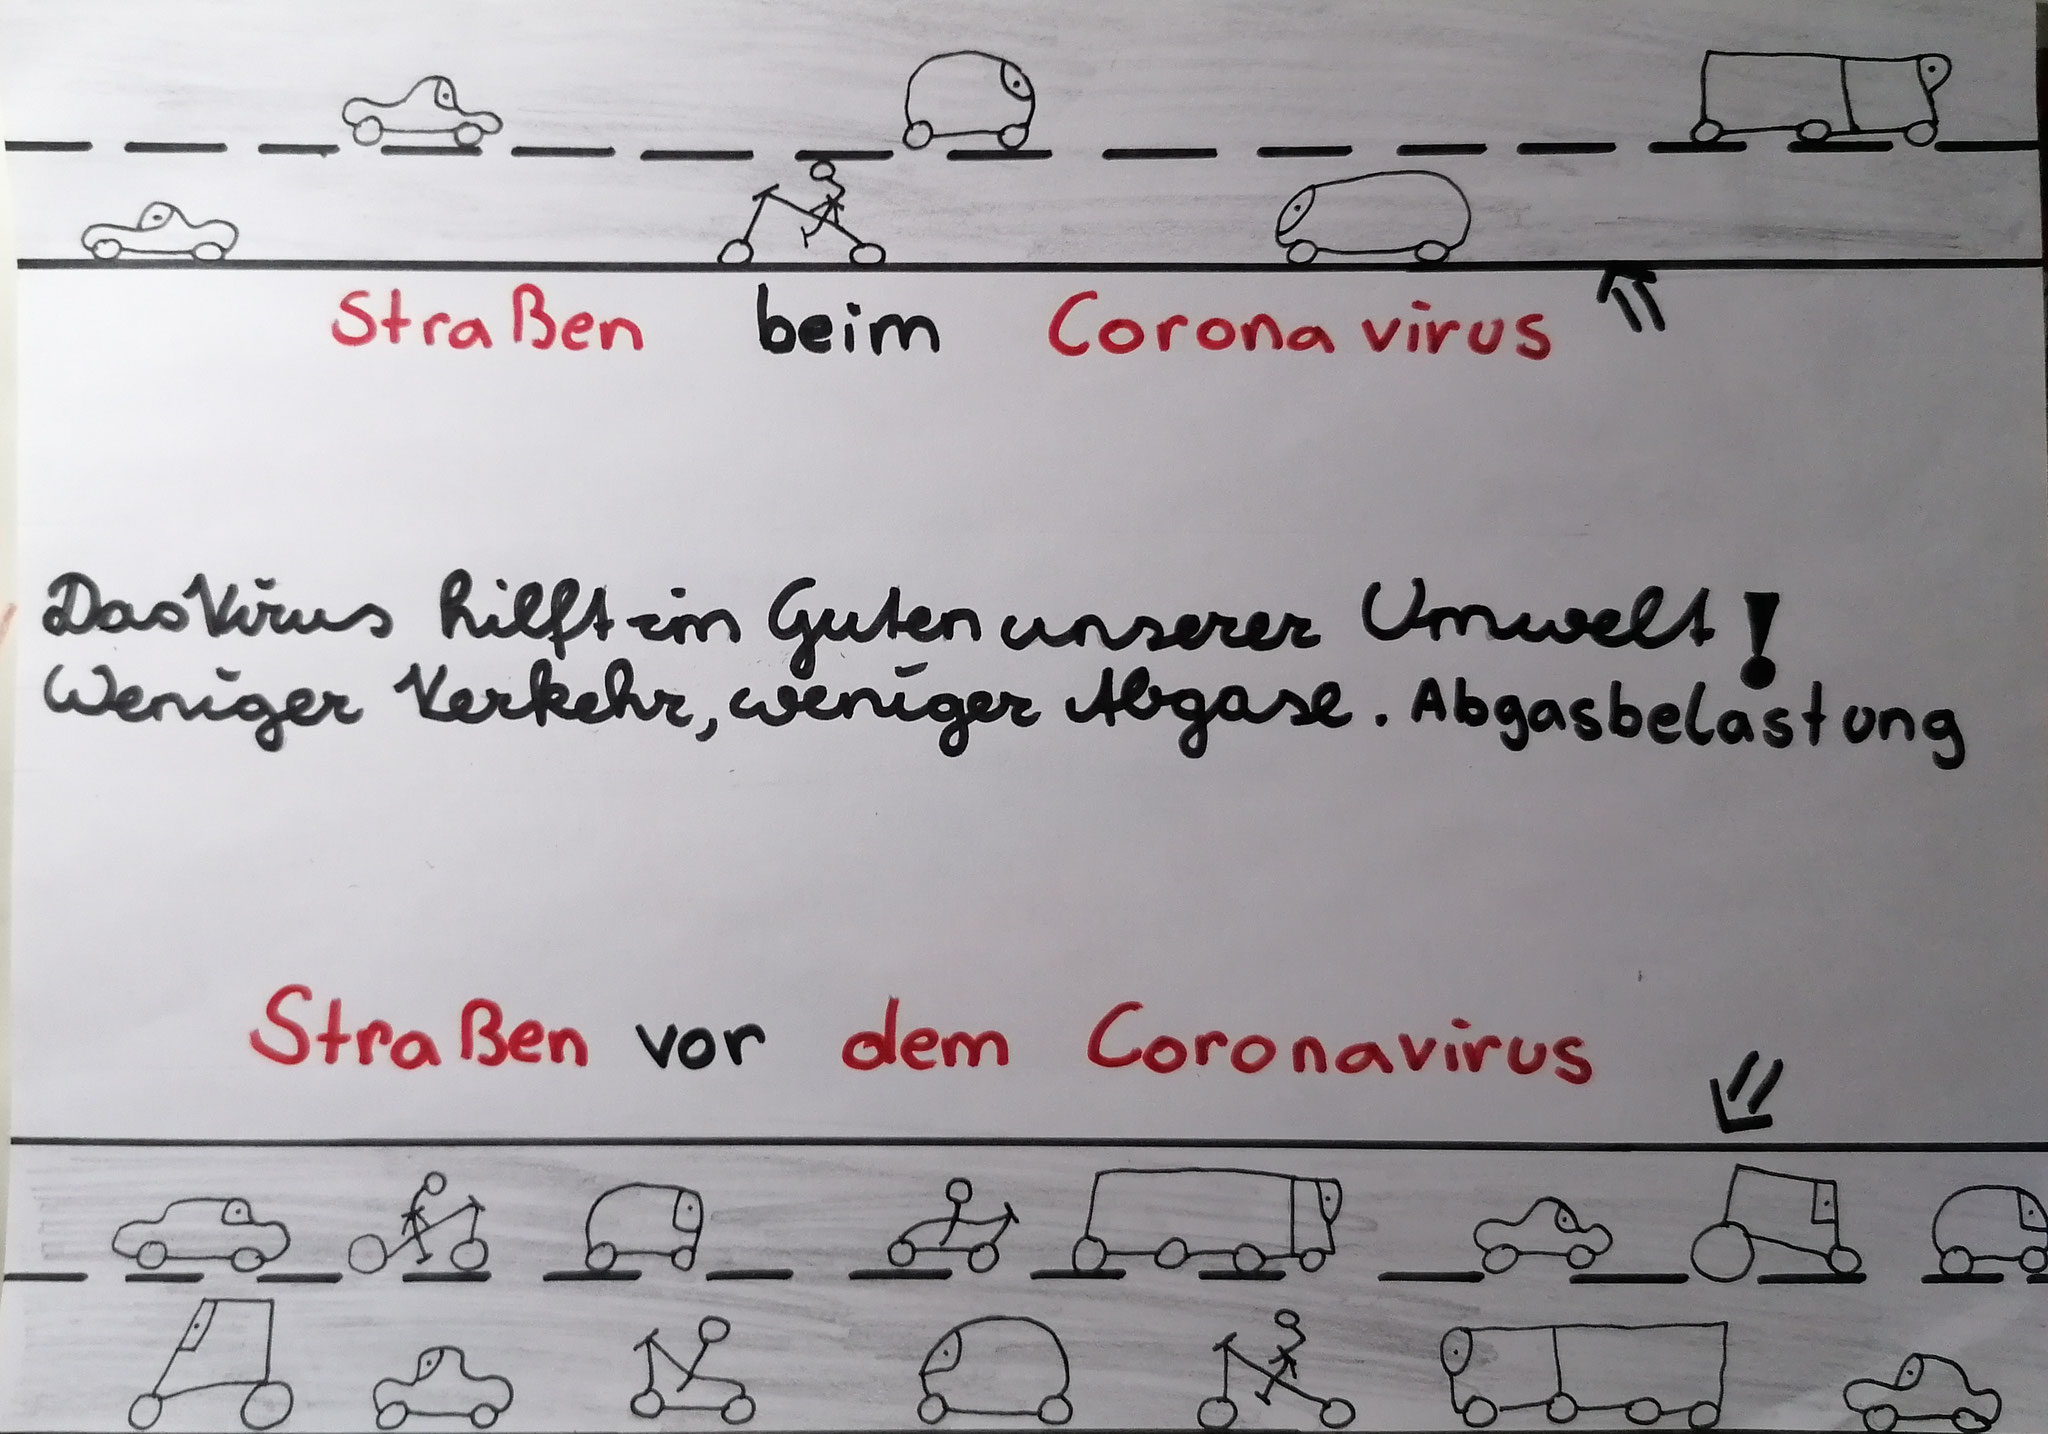 Straßen beim Coronavirus
Das Virus hilft im Guten unserer Umwelt!
Weniger Verkehr, weniger Abgase. Abgasbelastung
Straßen vor dem Coronavirus